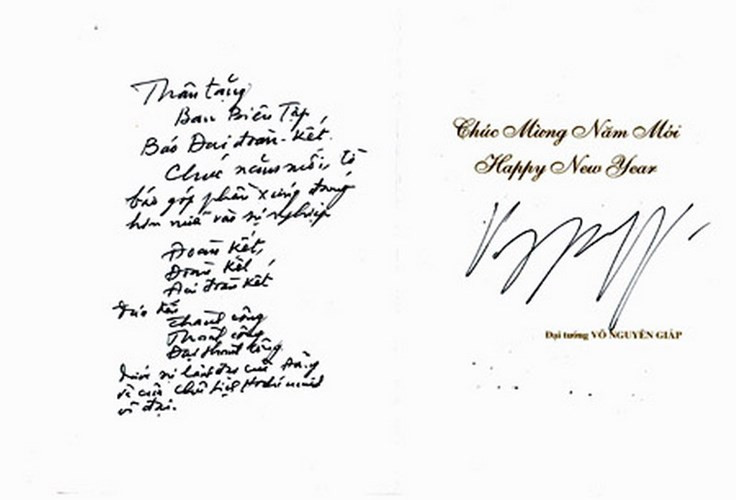 Thân tặng
Ban Biên Tập,
Báo Đại đoàn-kết.
Chúc năm mới, tờ
báo góp phần xứng đáng
hơn nữa vào sự nghiệp
Đoàn kết,
Đoàn kết,
Đại đoàn kết
Thành công
Thành công
Đại thành công
dưới sự lãnh đạo của Đảng
và của Chủ tịch Hồ Chí Minh
vĩ đại.
Chúc Mừng Năm Mới
Happy New Year
Đại tướng VÕ NGUYÊN GIÁP